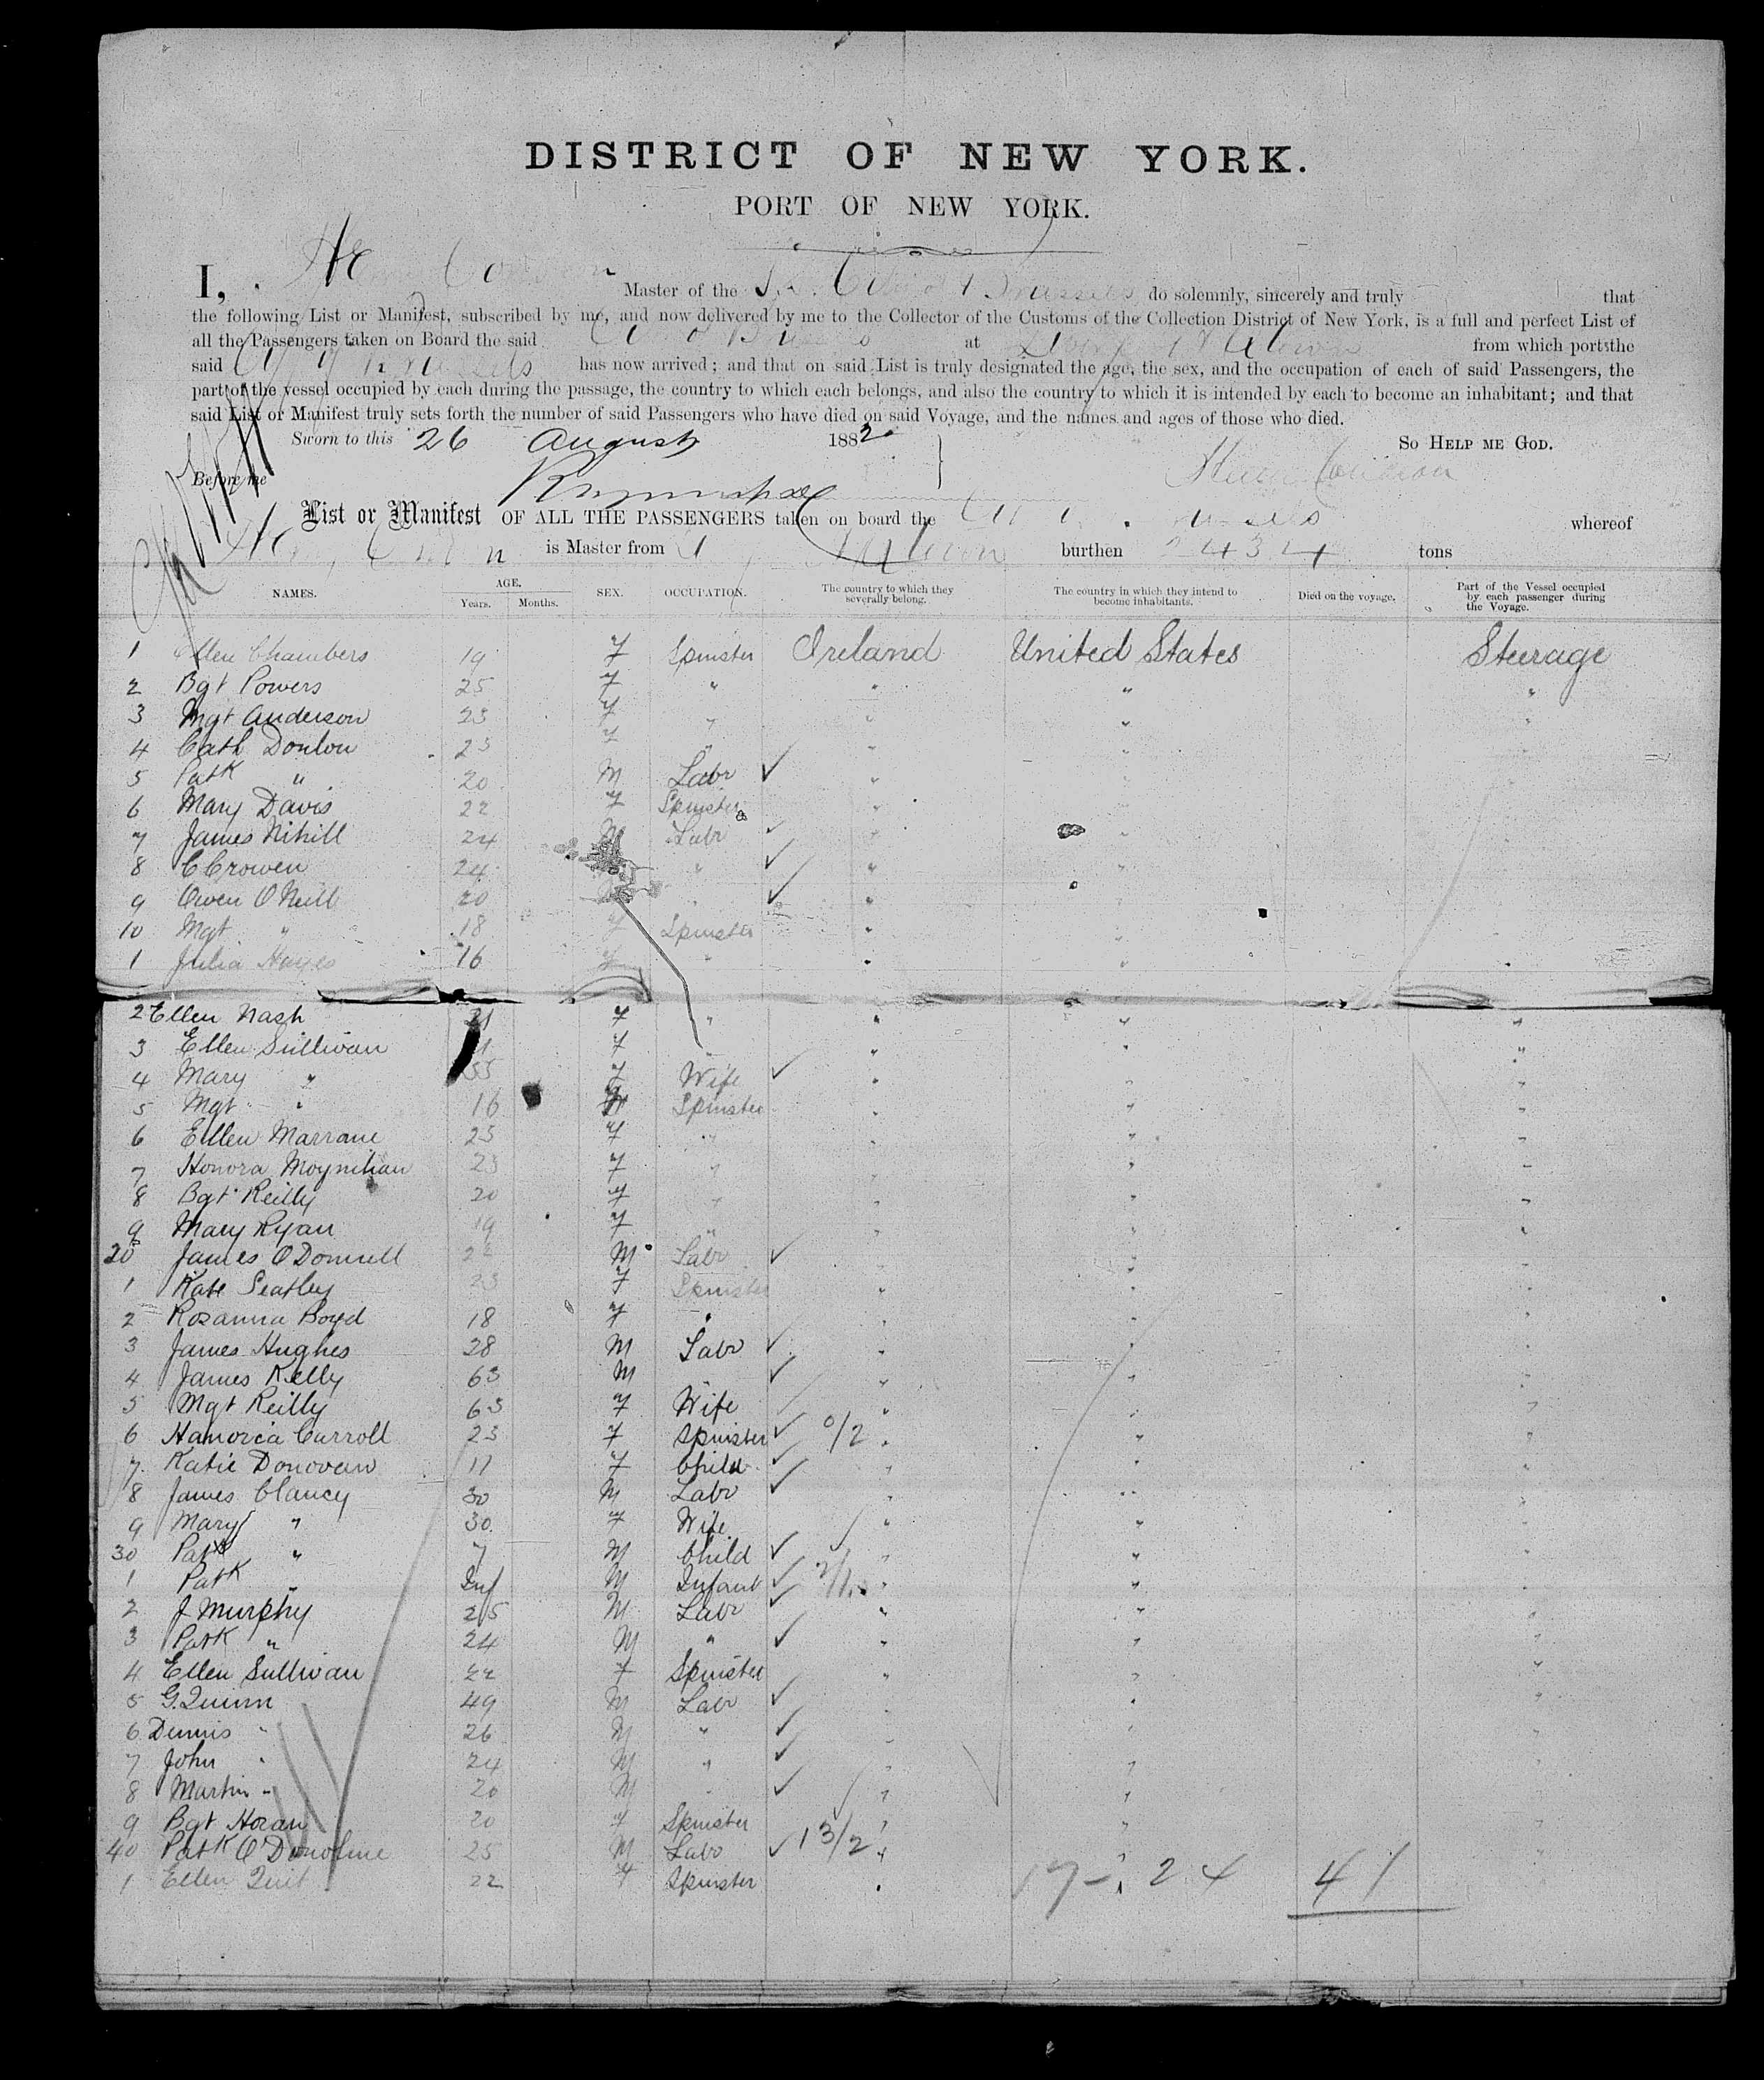 DISTRICT OF NEW YORK.
PORT OF NEW YORK.
I, Master of the do solemnly, sincerely and truly that
the following List or Manifest, subscribed by me, and now delivered by me to the Collector of the Customs of the Collection District of New York, is a full and perfect List of
all the Passengers taken on Board the said at from which port the
said City of Brussels has now arrived; and that on said List is truly designated the age, the sex, and the occupation of each of said Passengers, the
part of the vessel occupied by each during the passage, the country to which each belongs, and also the country to which it is intended by each to become an inhabitant; and that
said List or Manifest truly sets forth the number of said Passengers who have died on said Voyage, and the names and ages of those who died.
Sworn to this 26 August 1882 So HELP ME GOD.
Before me
List or Manifest OF ALL THE PASSENGERS taken on board the whereof
is Master from burthen 2434 tons
NAMES. AGE. Years. Months. SEX. OCCUPATION. The country to which they severally belong. The country in which they intend to become inhabitants. Died on the voyage. Part of the Vessel occupied by each passenger during the Voyage.
1 Ellen Chambers 19 F Spinster Ireland United States Steerage
2 Bgt Powers 25 F " " " "
3 Mgt Anderson 23 F " " " "
4 Cath Donlon 25 F " " " "
5 Patk " 20 M Labr " "
6 Mary Davis 22 F Spinster "
7 James Nihill 24 M Labr " "
8 C Crowen 24 " " "
9 Owen O Neill 20 "
10 Mgt " 18 F Spinster " "
1 Julia Hayes 16 F " " "
2 Ellen Nash 21 F " " " "
3 Ellen Sullivan F " " "
4 Mary " 55 F Wife " " "
5 Mgt " 16 F Spinster " " "
6 Ellen Marrane 25 F " " " "
7 Honora Moynihan 23 F " " " "
8 Bgt Reilly 20 F " " " "
9 Mary Ryan 19 F " " " "
20 James O Donnell M Labr " "
1 Kate Seatley 23 F Spinster " " "
2 Rosanna Boyd 18 F " " " "
3 James Hughes 28 M Labr " " "
4 James Kelly 63 M " " " "
5 Mgt Reilly 63 F Wife " " "
6 Hanoria Carroll 23 F Spinster 0/2 " " "
7 Katie Donovan 11 F Child " " "
8 James Clancy 30 M Labr " " "
9 Mary " 30 F Wife " " "
30 Patk " 7 M Child " " "
1 Patk " Inf M Infant " " "
2 J Murphy 25 M Labr " " "
3 Patk " 24 M " " " "
4 Ellen Sullivan 22 F Spinster " " "
5 G. Quinn 49 M Labr " "
6 Dennis " 26 M " " " "
7 John " 24 M " " " "
8 Martin " 20 M " " " "
9 Bgt Horan 20 F Spinster " " "
40 Patk O'Donohue 25 M Labr 13/2 " " "
1 Ellen 22 F Spinster " 17 - 24 41